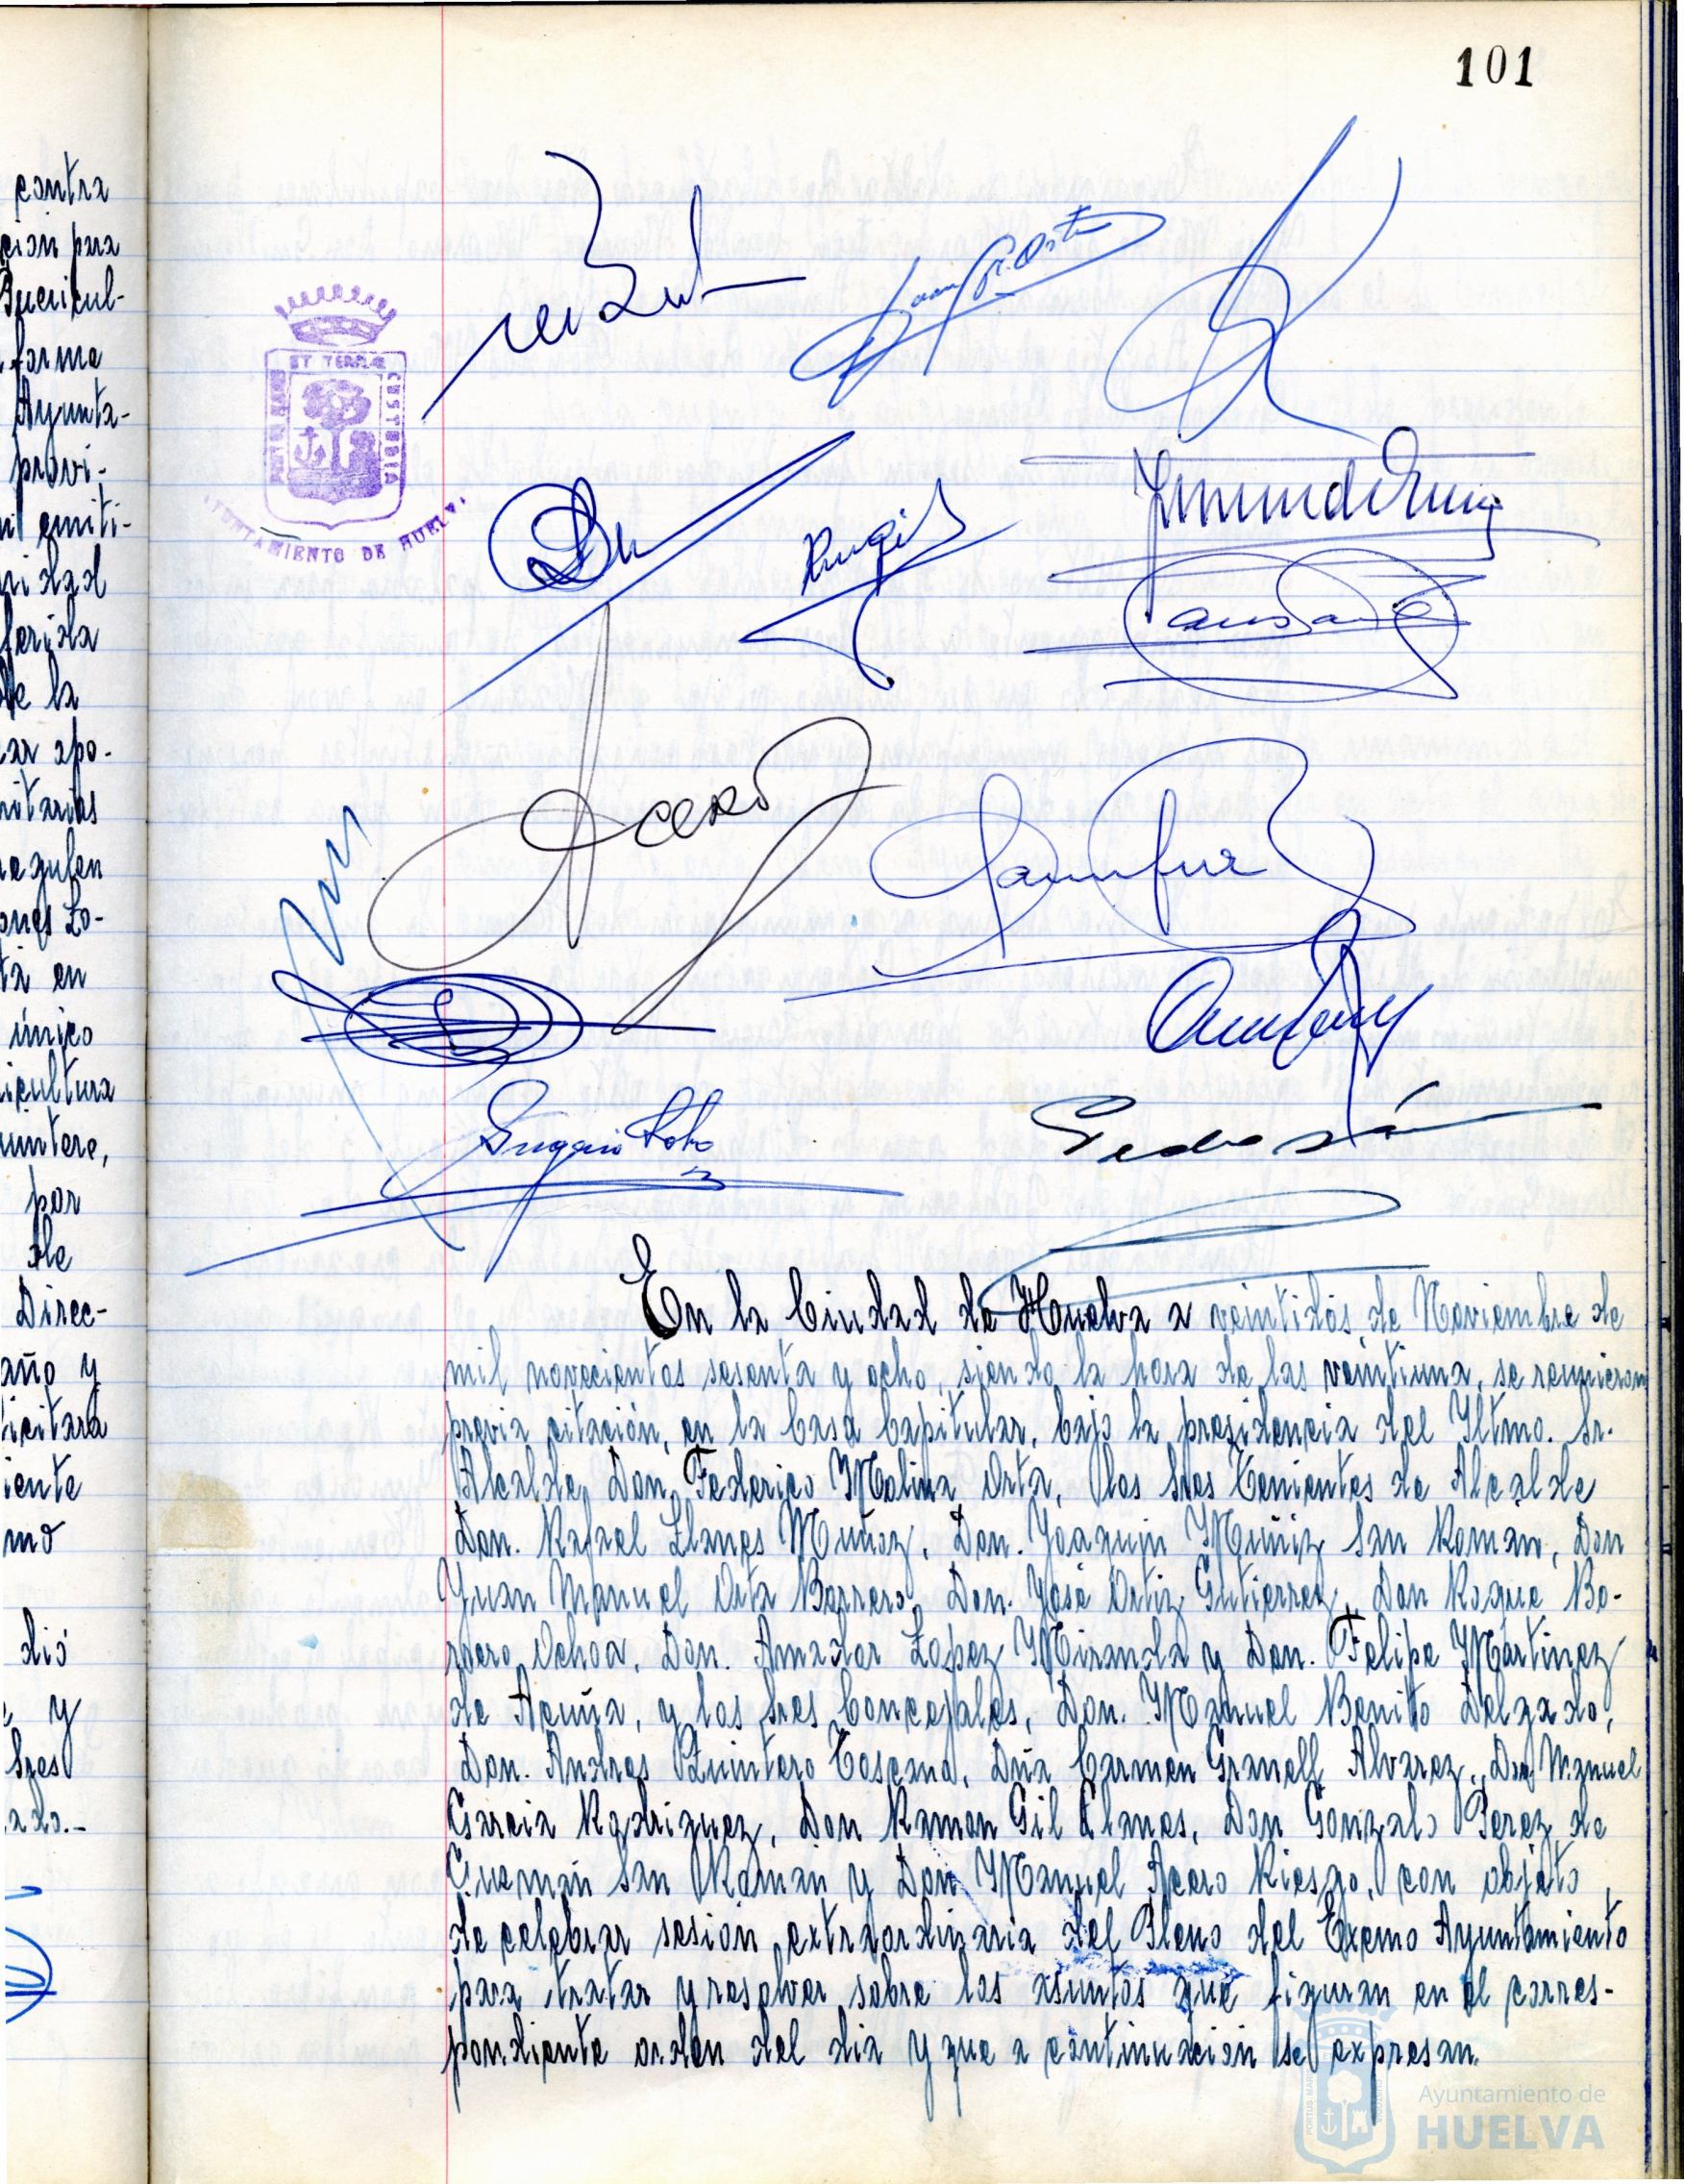 101
contra
ción para
Puericul-
forma
Ayunta-
provi-
emiti-
ferida
de la
apo-
nitarias
regulen
ones Lo-
en
único
icultura
por
de
Direc-
año y
licitará
iente
mo
dió
y
Sres
PORTUS MARIS ET TERRAE CUSTODIA
AYUNTAMIENTO DE HUELVA
Juan M. Orta
Acero
Eugenio
En la Ciudad de Huelva a veintidós de Noviembre de
mil novecientos sesenta y ocho, siendo la hora de las veintiuna, se reunieron
previa citación, en la Casa Capitular, bajo la presidencia del Yltmo. Sr.
Alcalde, Don Federico Molina Orta, los Sres Tenientes de Alcalde
Don. Rafael Llanes Muñoz, Don. Joaquin Muñiz San Roman, Don
Juan Manuel Orta Borrero, Don. José Ortiz Gutierrez, Don Roque Bo-
rrero Ochoa, Don. Amador Lopez Miranda y Don. Felipe Martinez
de Acuña, y los Sres Concejales, Don. Manuel Benito Delgado,
Don. Andres Quintero Toscano, Dña Carmen Granell Alvarez, Don Manuel
Garcia Rodriguez, Don Ramon Gil Llanes, Don Gonzalo Perez de
Guzmán San Román y Don Manuel Acero Riesgo, con objeto
de celebrar sesión extraordinaria del Pleno del Excmo Ayuntamiento
para tratar y resolver sobre los asuntos que figuran en el corres-
pondiente orden del dia y que a continuación se expresan.
Ayuntamiento de
HUELVA